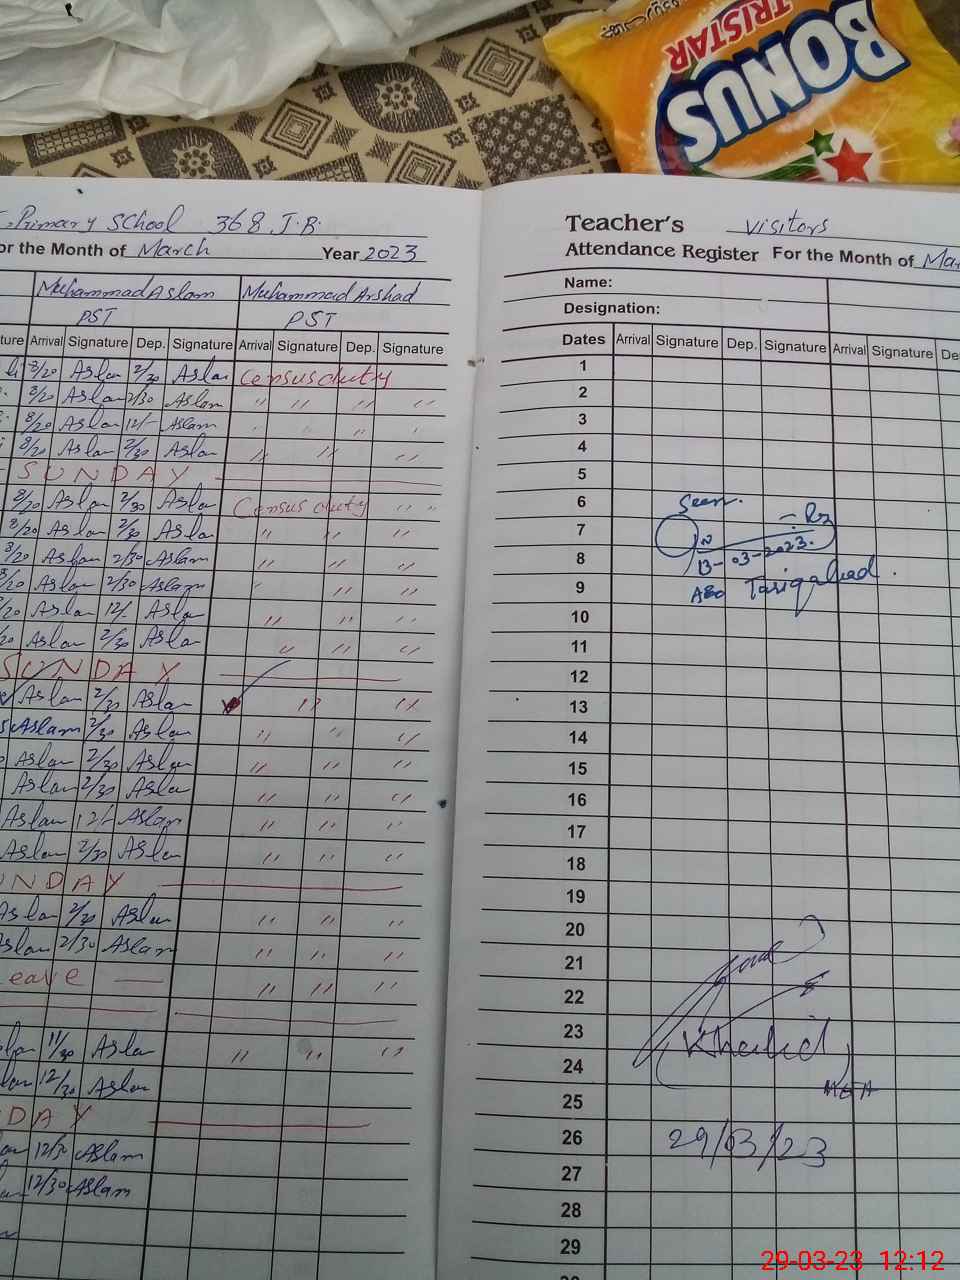 BONUS
TRISTAR
Primary School 368 J.B.
or the Month of March Year 2023
Muhammad Aslam Muhammad Arshad
PST PST
ture Arrival Signature Dep. Signature Arrival Signature Dep. Signature
8/20 Aslam 2/30 Aslam Census duty
8/20 Aslam 2/30 Aslam " " " "
8/20 Aslam 12/- Aslam " " " "
8/20 Aslam 2/30 Aslam " " "
SUNDAY
8/20 Aslam 2/30 Aslam Census duty " "
8/20 Aslam 2/30 Aslam " " "
8/20 Aslam 2/30 Aslam " " "
8/20 Aslam 2/30 Aslam " " "
/20 Aslam 12/- Aslam " " "
/20 Aslam 2/30 Aslam " " "
SUNDAY
Aslam 2/30 Aslam " "
Aslam 2/30 Aslam " " "
Aslam 2/30 Aslam " " "
Aslam 2/30 Aslam " " "
Aslam 12/- Aslam " " "
Aslam 2/30 Aslam " " "
UNDAY
Aslam 2/30 Aslam " " "
Aslam 2/30 Aslam " " "
eave " " "
11/30 Aslam " " "
12/30 Aslam
DAY
12/30 Aslam
12/30 Aslam
Teacher's visitors
Attendance Register For the Month of Mar
Name:
Designation:
Dates Arrival Signature Dep. Signature Arrival Signature De
1
2
3
4
5
6 Seen.
7
8 13-03-2023.
9 AEO
10
11
12
13
14
15
16
17
18
19
20
21
22
23
24 Khalid
25 MEA
26 29/03/23
27
28
29
29-03-23 12:12